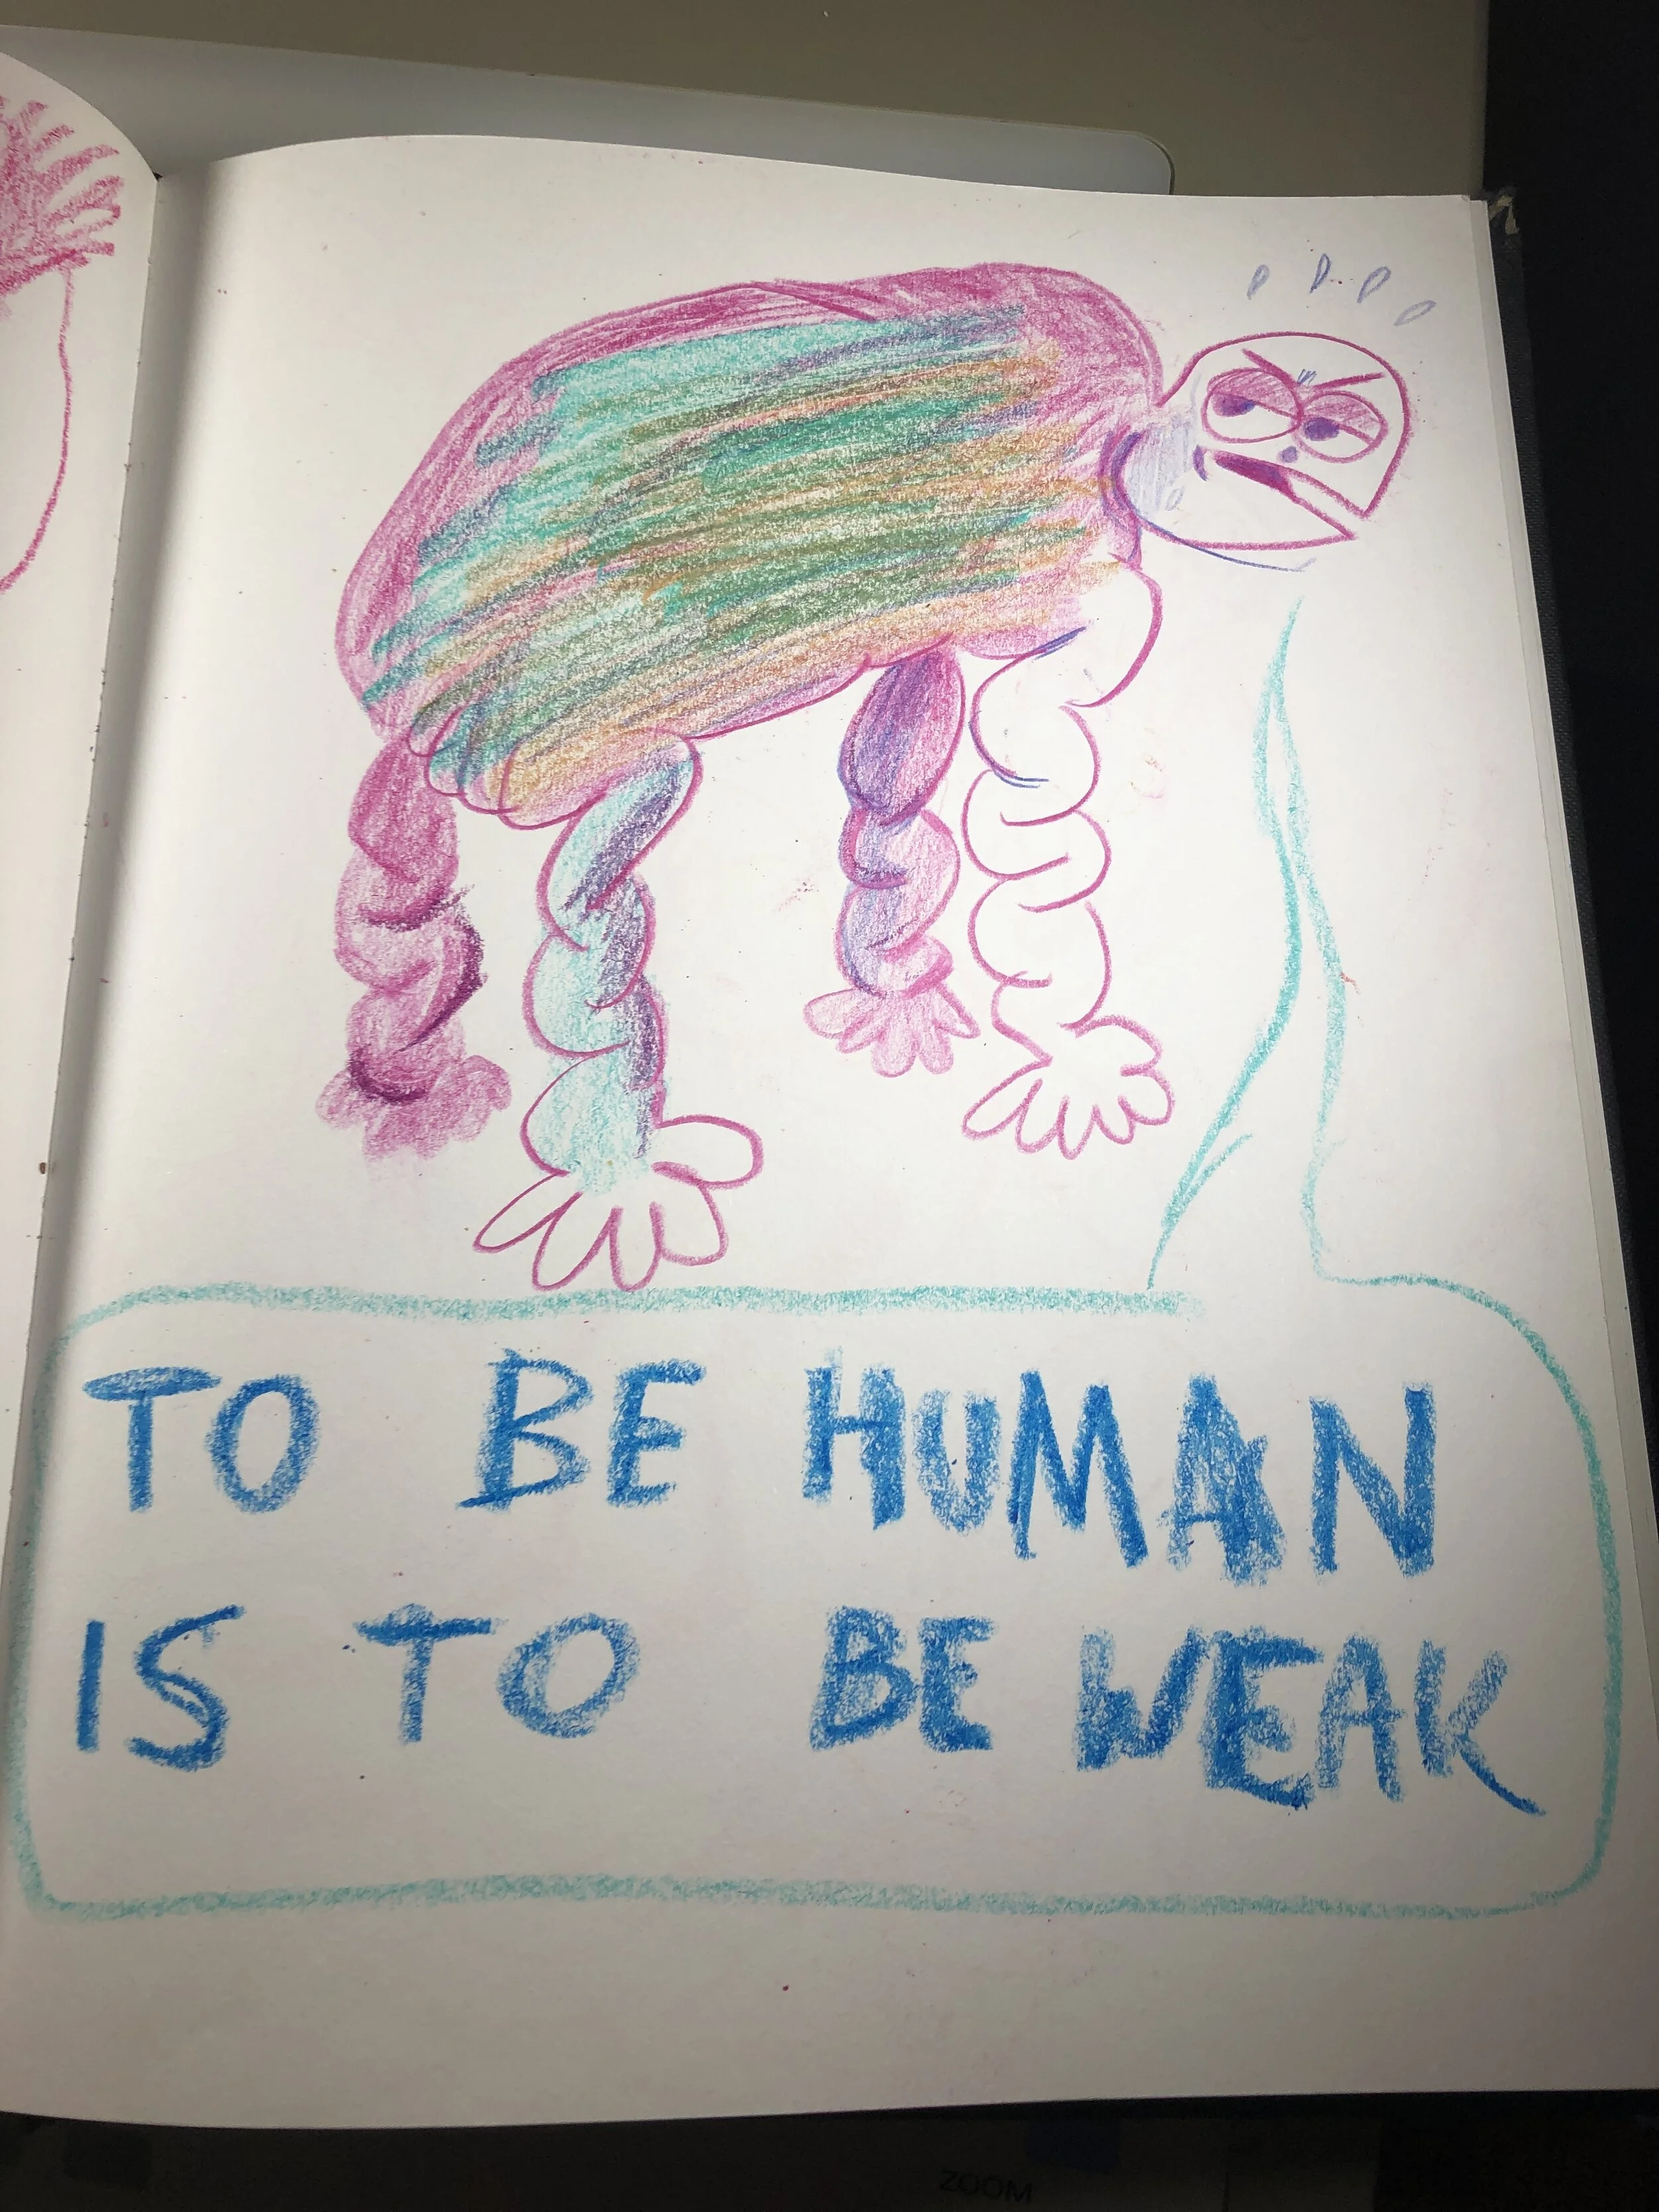 TO BE HUMAN
IS TO BE WEAK
ZOOM